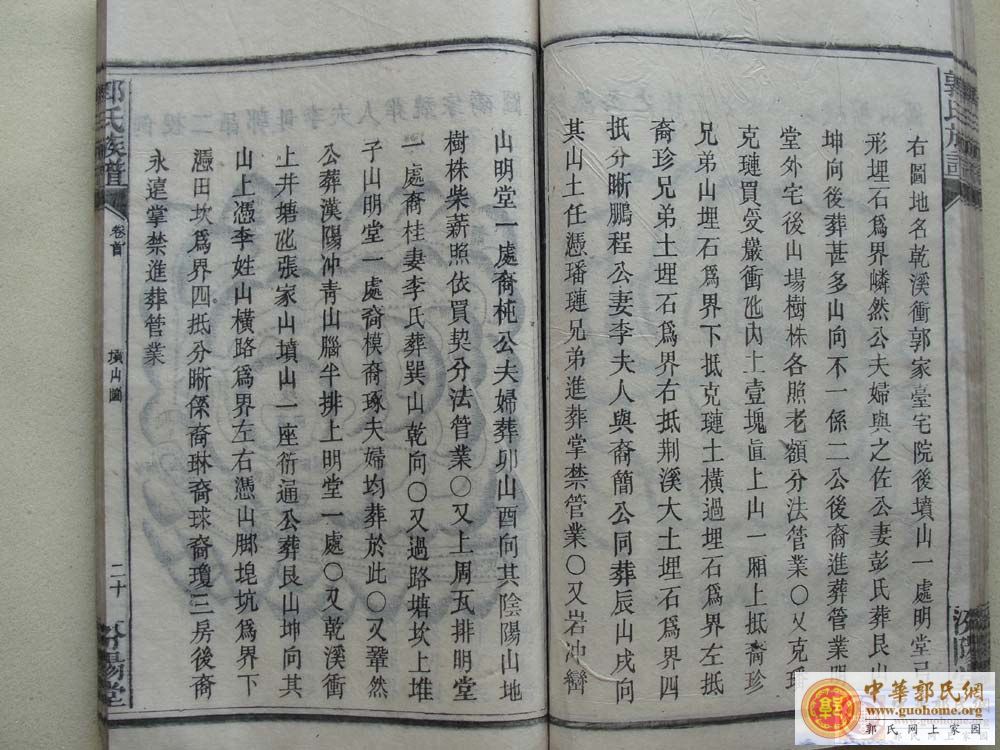 郭氏族譜
右圖地名乾溪衝郭家臺宅院後墳山一處明堂
形埋石爲界嶙然公夫婦與之佐公妻彭氏葬艮山
坤向後葬甚多山向不一係二公後裔進葬管業
堂外宅後山場樹株各照老額分法管業〇又克璠
克璉買受巖衝佨內土壹塊直上山一厢上抵裔珍
兄弟山埋石爲界下抵克璉土橫過埋石爲界左抵
裔珍兄弟土埋石爲界右抵荆溪大土埋石爲界四
抵分晰鵬程公妻李夫人與裔簡公同葬辰山戌向
其山土任憑璠璉兄弟進葬掌禁管業〇又岩冲巒
山明堂一處裔杶公夫婦葬卯山酉向其陰陽山地
樹株柴薪照依買契分法管業〇又上周瓦排明堂
一處裔桂妻李氏葬巽山乾向〇又過路塘坎上堆
子山明堂一處裔模裔琢夫婦均葬於此〇又鞏然
公葬漢陽冲青山腦半排上明堂一處〇又乾溪衝
上井塘佨張家山墳山一座衍通公葬艮山坤向其
山上憑李姓山橫路爲界左右憑山脚埠坑爲界下
憑田坎爲界四抵分晰係裔琳裔球裔瓊三房後裔
永遠掌禁進葬管業
郭氏族譜
卷首
墳山圖
二十
汾陽堂
中華郭氏網
www.guohome.org
郭氏网上家园